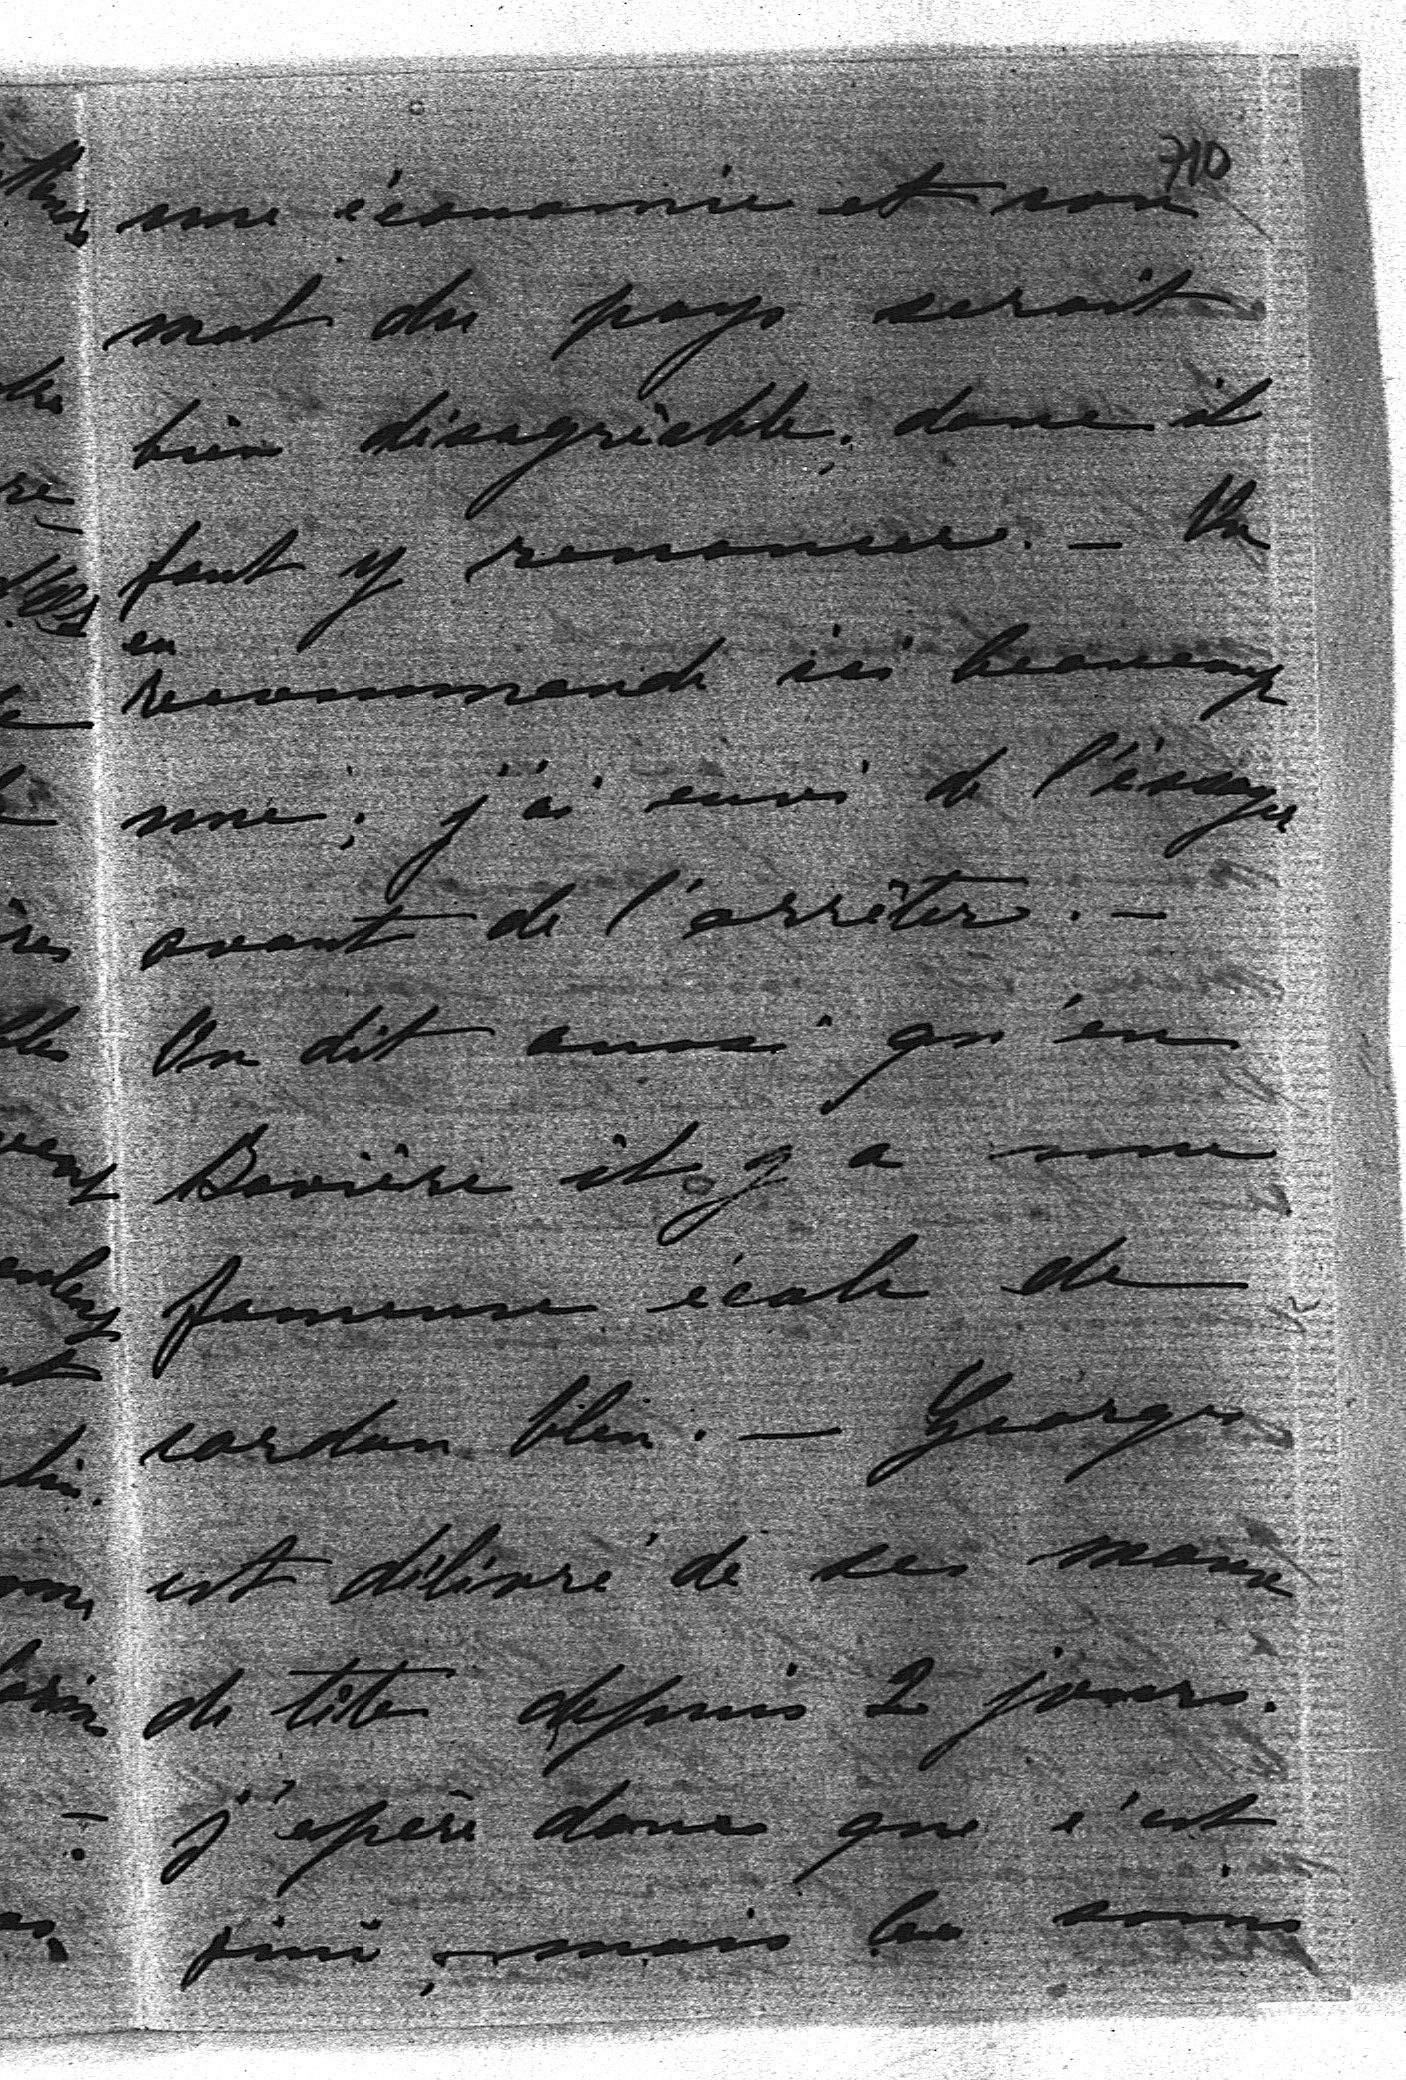 710
une économie et son
mal du pays serait
bien désagréable, donc il
faut y renoncer. — On
en
recommande ici beaucoup
une; j'ai envi de l'essayer
avant de l'arrêter. —
On dit aussi qu'en
Bavière il y a une
fameuse école de
cordon bleu. — Georges
est délivré de ses maux
de tête depuis 2 jours.
j'epère donc que c'est
fini, mais les soins